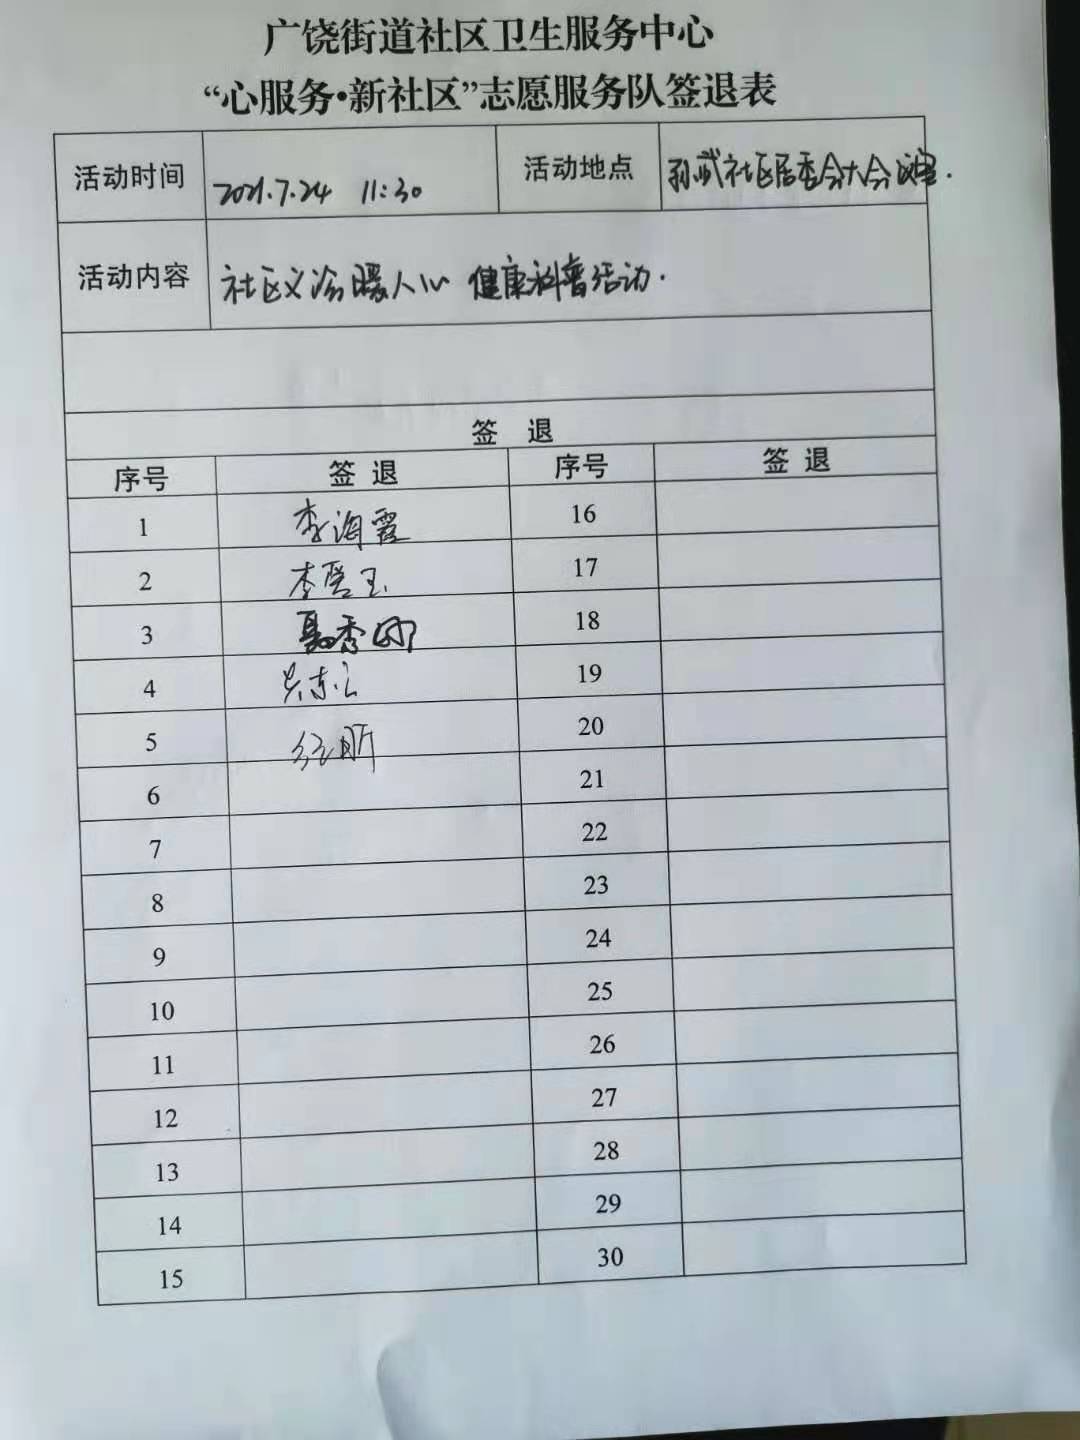 广饶街道社区卫生服务中心
“心服务•新社区”志愿服务队签退表
活动时间 2021.7.24 11:30 活动地点 孙武社区居委会大会议室.
活动内容 社区义诊暖人心 健康科普活动.
签 退
序号 签 退 序号 签 退
1 李海霞 16
2 李 玉 17
3 聂秀 18
4 19
5 20
6 21
7 22
8 23
9 24
10 25
11 26
12 27
13 28
14 29
15 30